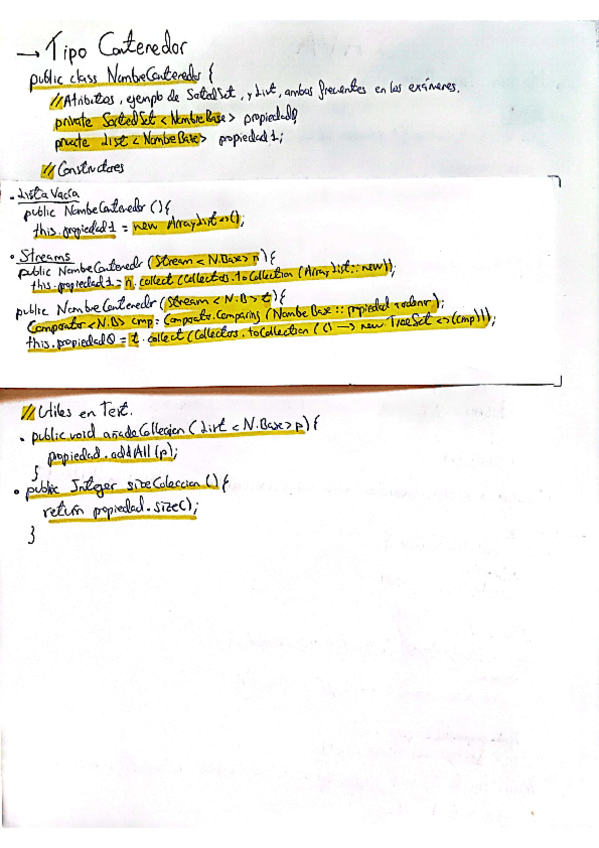 → Tipo Contenedor
public class NombeContenedor {
// Atributos, ejemplo de SortedSet, y List, ambas frecuentes en los exámenes.
private SortedSet < NombreBase > propiedad0;
private List < NombreBase > propiedad1;
// Constructores
• Lista Vacía
public NombeContenedor () {
this.propiedad1 = new ArrayList<>();
• Streams
public NombeContenedor (Stream < N.Base> n) {
this.propiedad1 = n.collect (Collectors.toCollection (ArrayList::new));
public NombeContenedor (Stream < N.B > t) {
Comparator <N.B> cmp: Comparator.Comparing (NombeBase :: propiedad);
this.propiedad0 = t.collect (Collectors.toCollection (() → new TreeSet <>(cmp)));
// Utiles en Test.
• public void añadeColleccion (List < N.Base> p) {
propiedad.addAll (p);
}
• public Integer sizeColeccion () {
return propiedad.size();
}